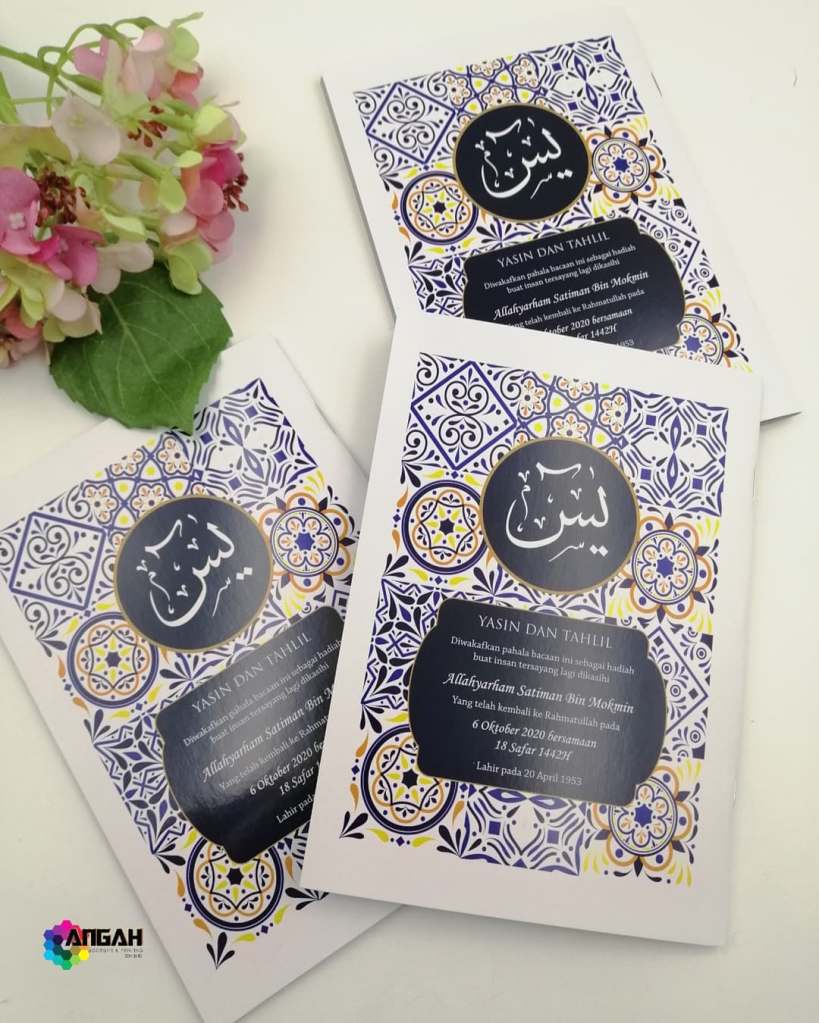 يس
YASIN DAN TAHLIL
Diwakafkan pahala bacaan ini sebagai hadiah
buat insan tersayang lagi dikasihi
Allahyarham Satiman Bin Mokmin
Yang telah kembali ke Rahmatullah pada
6 Oktober 2020 bersamaan
18 Safar 1442H
1953
يس
YASIN DAN TAHLIL
Diwakafkan pahala bacaan ini sebagai hadiah
buat insan tersayang lagi dikasihi
Allahyarham Satiman Bin M
Yang telah kembali ke Rahmat
6 Oktober 2020 bersam
18 Safar 14
Lahir pada
يس
YASIN DAN TAHLIL
Diwakafkan pahala bacaan ini sebagai hadiah
buat insan tersayang lagi dikasihi
Allahyarham Satiman Bin Mokmin
Yang telah kembali ke Rahmatullah pada
6 Oktober 2020 bersamaan
18 Safar 1442H
Lahir pada 20 April 1953
ANGAH